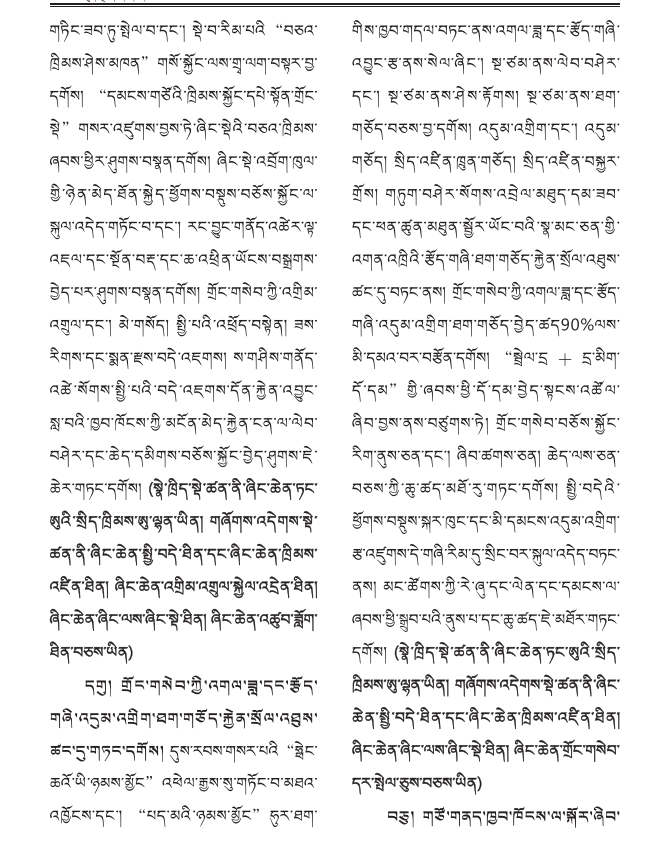 གཏིང་ཟབ་ཏུ་སྤེལ་བ་དང་། སྡེ་བ་རིམ་པའི “བཅའ་
ཁྲིམས་ཤེས་མཁན” གསོ་སྐྱོང་ལས་གྲྭ་ལག་བསྟར་བྱ་
དགོས། “དམངས་གཙོའི་ཁྲིམས་སྐྱོང་དཔེ་སྟོན་གྲོང་
སྡེ” གསར་འཛུགས་བྱས་ཏེ་ཞིང་སྡེའི་བཅའ་ཁྲིམས་
ཞབས་ཕྱིར་ཤུགས་བསྣན་དགོས། ཞིང་སྡེ་འབྲོག་ཁུལ་
གྱི་ཉེན་མེད་ཐོན་སྐྱེད་ཕྱོགས་བསྡུས་བཅོས་སྐྱོང་ལ་
སྐུལ་འདེད་གཏོང་བ་དང་། རང་བྱུང་གནོད་འཚེར་ལྟ་
འཇལ་དང་སྔོན་བརྡ་དང་ཆ་འཕྲིན་ཡོངས་བསྒྲགས་
བྱེད་པར་ཤུགས་བསྣན་དགོས། གྲོང་གསེབ་ཀྱི་འགྲིམ་
འགྲུལ་དང་། མེ་གསོད། སྤྱི་པའི་འཕྲོད་བསྟེན། ཟས་
རིགས་དང་སྨན་རྫས་བདེ་འཇགས། ས་གཤིས་གནོད་
འཚེ་སོགས་སྤྱི་པའི་བདེ་འཇགས་དོན་རྐྱེན་འབྱུང་
སླ་བའི་ཁྱབ་ཁོངས་ཀྱི་མངོན་མེད་རྐྱེན་ངན་ལ་ལེབ་
བཤེར་དང་ཆེད་དམིགས་བཅོས་སྐྱོང་བྱེད་ཤུགས་ཇེ་
ཆེར་གཏང་དགོས། (སྣེ་ཁྲིད་སྡེ་ཚན་ནི་ཞིང་ཆེན་ཏང་
ཨུའི་སྲིད་ཁྲིམས་ཨུ་ལྷན་ཡིན། གཞོགས་འདེགས་སྡེ་
ཚན་ནི་ཞིང་ཆེན་སྤྱི་བདེ་ཐིན་དང་ཞིང་ཆེན་ཁྲིམས་
འཛིན་ཐིན། ཞིང་ཆེན་འགྲིམ་འགྲུལ་སྐྱེལ་འདྲེན་ཐིན།
ཞིང་ཆེན་ཞིང་ལས་ཞིང་སྡེ་ཐིན། ཞིང་ཆེན་འཚུབ་ཟློག་
ཐིན་བཅས་ཡིན)
དགུ། གྲོང་གསེབ་ཀྱི་འགལ་ཟླ་དང་རྩོད་
གཞི་འདུམ་འགྲིག་ཐག་གཅོད་རྐྱེན་སྲོལ་འཐུས་
ཚང་དུ་གཏང་དགོས། དུས་རབས་གསར་པའི “ཧྥེང་
ཆའོ་ཡི་ཉམས་མྱོང” འཕེལ་རྒྱས་སུ་གཏོང་བ་མཐའ་
འཁྱོངས་དང་། “པད་མའི་ཉམས་མྱོང” ཧུར་ཐག་
གིས་ཁྱབ་གདལ་བཏང་ནས་འགལ་ཟླ་དང་རྩོད་གཞི་
འབྱུང་རྩ་ནས་སེལ་ཞིང་། སྔ་ཙམ་ནས་ལེབ་བཤེར་
དང་། སྔ་ཙམ་ནས་ཤེས་རྟོགས། སྔ་ཙམ་ནས་ཐག་
གཅོད་བཅས་བྱ་དགོས། འདུམ་འགྲིག་དང་། འདུམ་
གཅོད། སྲིད་འཛིན་ཁྲུན་གཅོད། སྲིད་འཛིན་བསྐྱར་
གྲོས། གཏུག་བཤེར་སོགས་འབྲེལ་མཐུད་དམ་ཟབ་
དང་ཕན་ཚུན་མཐུན་སྦྱོར་ཡོང་བའི་སྣ་མང་ཅན་གྱི་
འགན་འཁྲིའི་རྩོད་གཞི་ཐག་གཅོད་རྐྱེན་སྲོལ་འཐུས་
ཚང་དུ་བཏང་ནས། གྲོང་གསེབ་ཀྱི་འགལ་ཟླ་དང་རྩོད་
གཞི་འདུམ་འགྲིག་ཐག་གཅོད་བྱེད་ཚད90%ལས་
མི་དམའ་བར་བརྩོན་དགོས། “སྦྲེལ་དྲ + དྲ་མིག་
དོ་དམ” གྱི་ཞབས་ཕྱི་དོ་དམ་བྱེད་སྟངས་འཚོལ་
ཞིབ་བྱས་ནས་བཙུགས་ཏེ། གྲོང་གསེབ་བཅོས་སྐྱོང་
རིག་ནུས་ཅན་དང་། ཞིབ་ཚགས་ཅན། ཆེད་ལས་ཅན་
བཅས་ཀྱི་ཆུ་ཚད་མཐོ་རུ་གཏང་དགོས། སྤྱི་བདེའི་
ཕྱོགས་བསྡུས་སྐར་ཁུང་དང་མི་དམངས་འདུམ་འགྲིག་
རྩ་འཛུགས་དེ་གཞི་རིམ་དུ་སྲིང་བར་སྐུལ་འདེད་བཏང་
ནས། མང་ཚོགས་ཀྱི་རེ་ཞུ་དང་ལེན་དང་དམངས་ལ་
ཞབས་ཕྱི་སྒྲུབ་པའི་ནུས་པ་དང་ཆུ་ཚད་ཇེ་མཐོར་གཏང་
དགོས། (སྣེ་ཁྲིད་སྡེ་ཚན་ནི་ཞིང་ཆེན་ཏང་ཨུའི་སྲིད་
ཁྲིམས་ཨུ་ལྷན་ཡིན། གཞོགས་འདེགས་སྡེ་ཚན་ནི་ཞིང་
ཆེན་སྤྱི་བདེ་ཐིན་དང་ཞིང་ཆེན་ཁྲིམས་འཛིན་ཐིན།
ཞིང་ཆེན་ཞིང་ལས་ཞིང་སྡེ་ཐིན། ཞིང་ཆེན་གྲོང་གསེབ་
དར་སྤེལ་ཅུས་བཅས་ཡིན)
བཅུ། གཙོ་གནད་ཁྱབ་ཁོངས་ལ་སྐོར་ཞིབ་